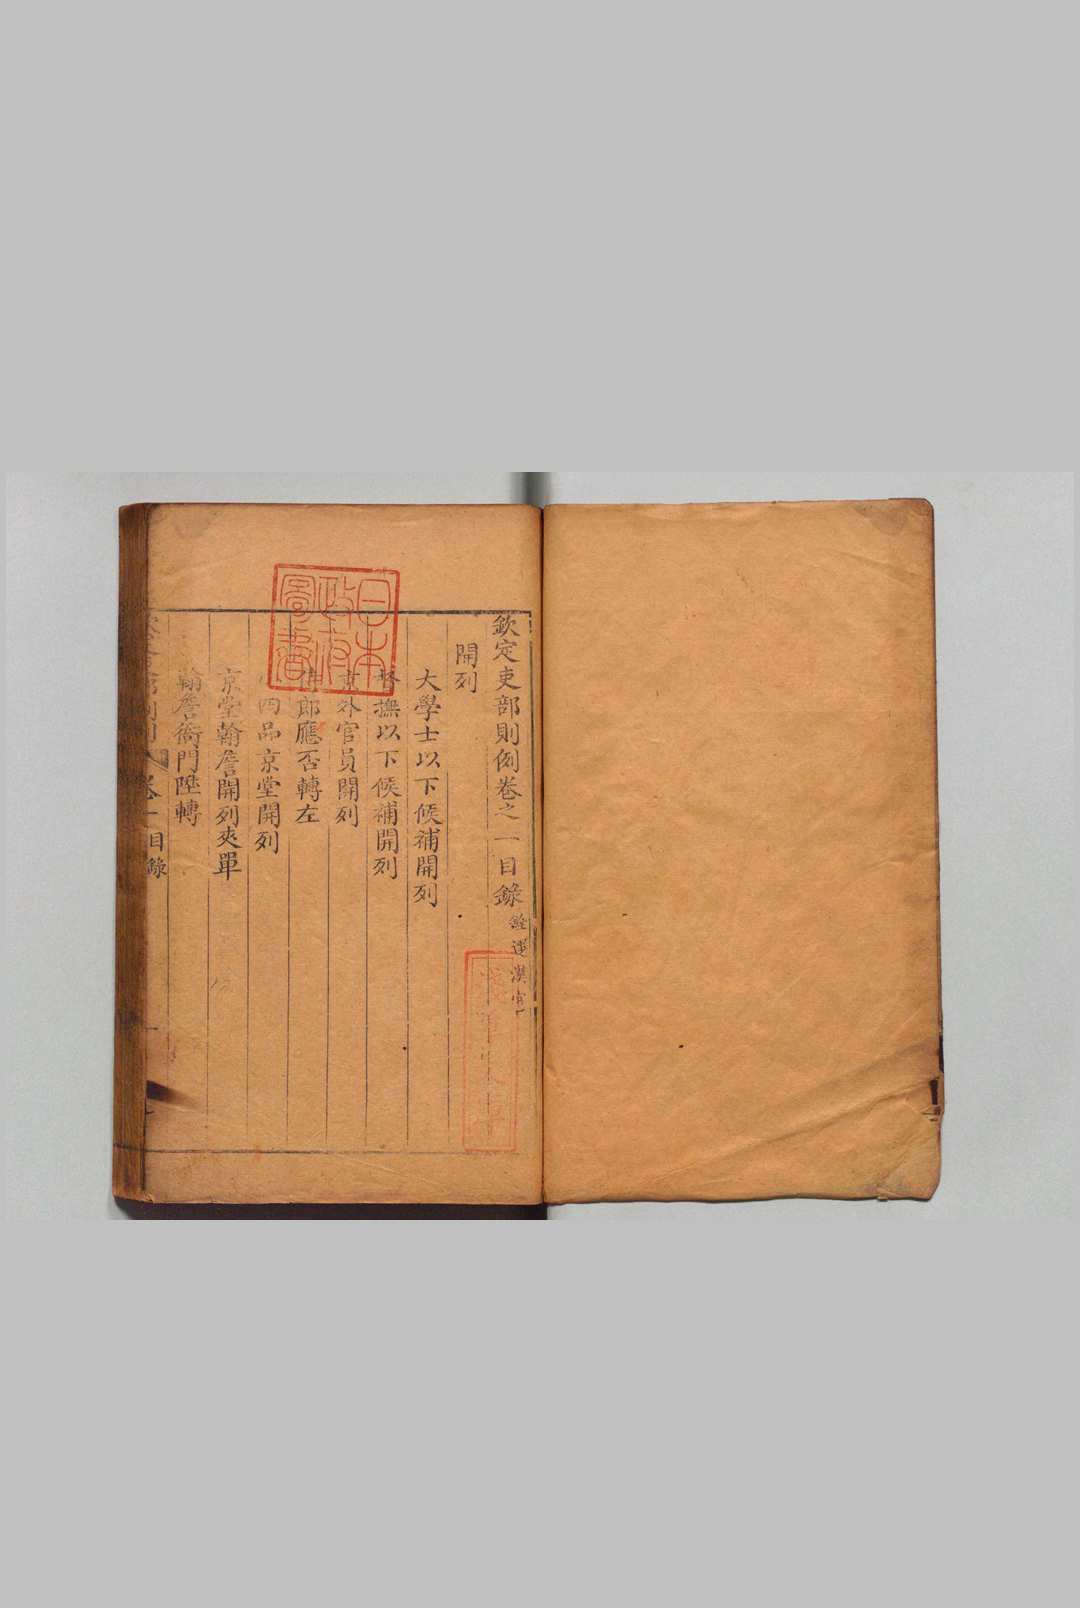 欽定吏部則例卷之一目錄 銓選漢官
開列
大學士以下候補開列
督撫以下候補開列
京外官員開列
侍郎應否轉左
四品京堂開列
京堂翰詹開列夾單
翰詹衙門陞轉
卷一目錄
一
日本
政府
圖書
淺草文庫